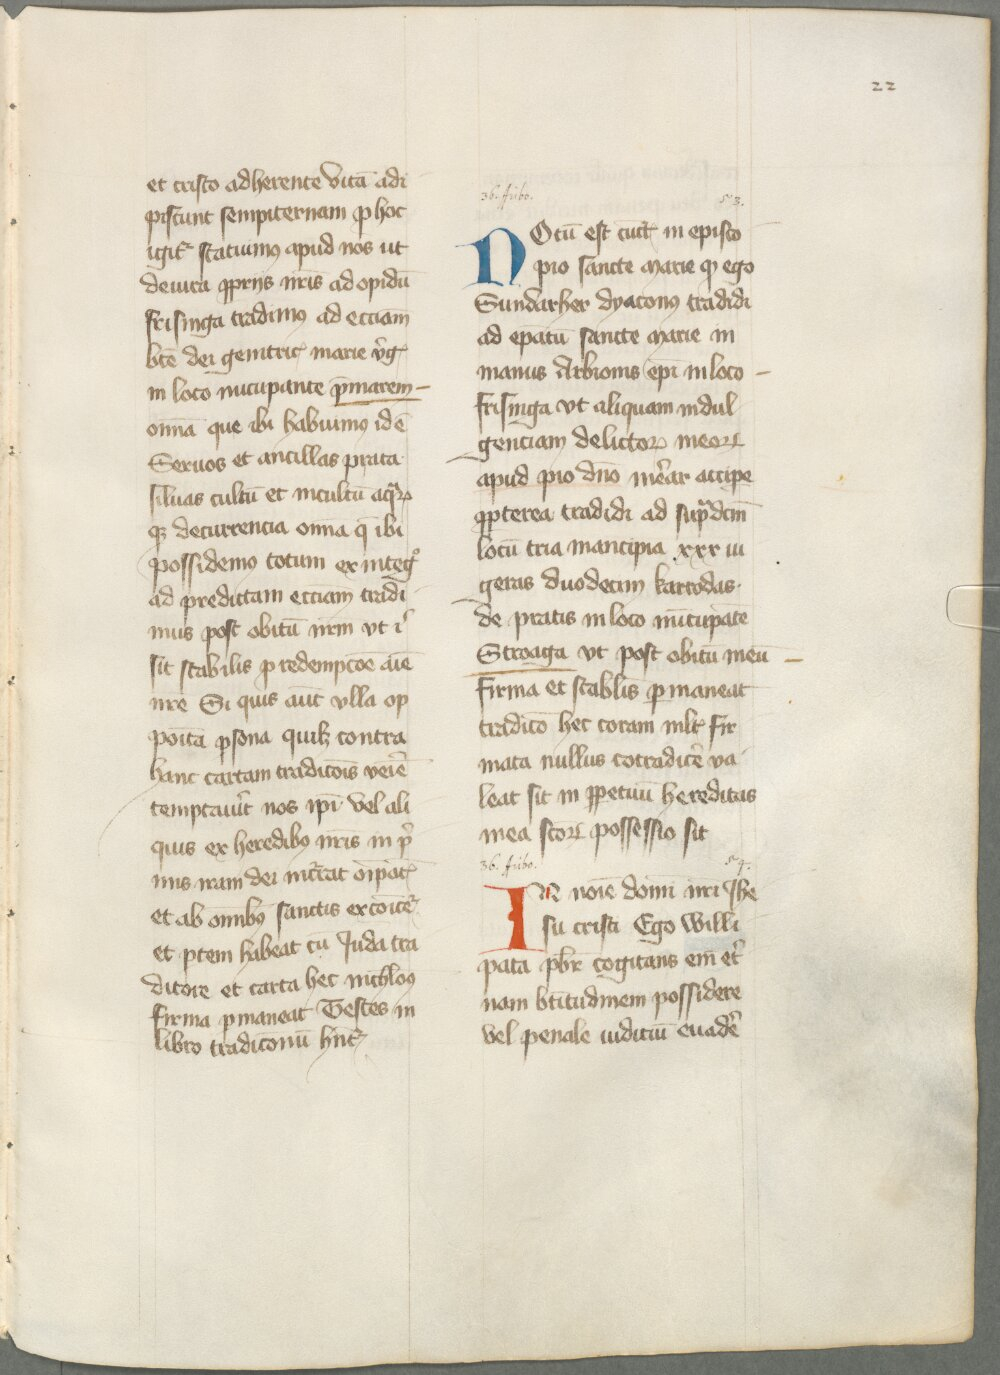 22
et cristo adherente vitā adi
piscunt sempiternam ꝑ hoc
igit᷑ statuimꝯ apud nos ut
deiura ꝓprijs nr̄is ad opidū
frisinga tradimꝯ ad ecciam
btē dei genitric᷑ marie v̄g᷑
in loco nūcupante p̄marem –
omīa que ibi habuimꝯ id ē
Seruos et ancillas prata
siluas cultū et incultū aqͣrꝝ
qꝫ decurrencia omīa q̄ ibi
possidemꝯ totum ex integͦ
ad predictam ecciam tradi
mus post obitū nr̄m vt i᷑
sit stabilis ꝑ redempcōe aīe
nr̄e Si quis aūt vlla op
poita ꝑsona quilꝫ contra
hanc cartam tradicōis veīre
temptau᷑it nos ip̄i vel ali
quis ex heredibꝯ nr̄is in p᷑
mis iram dei incͬrat oīpot᷑
et ab omībꝯ sanctis excōice᷑
et ꝑtem habeat cū Juda tra
ditore et carta hec nichilōꝯ
firma ꝑmaneat Testes in
libro tradicōnū hn̄t᷑
36. fribo. 53.
NOtū est cūct᷑ in episco
pio sancte marie ꝙ ego
Sundarher dyaconꝯ tradidi
ad ep̄atū sancte marie in
manus Arbionis ep̄i in loco –
frisinga vt aliquam indul
genciam delictoꝝ meoꝝ
apud pio dn̄o me᷑ar accipe
ꝓpterea tradidi ad supͣdcm̄
locū tria mancipia xxx iu
geras duodecim karrodas
de pratis in loco nūcupāte
Stroaga vt post obitū meū –
firma et stabilis ꝑmaneat
tradicō hec coram mlt᷑ fir
mata nullus cōtradice᷑ va
leat sit in ꝑpetuū hereditas
mea sc̄oꝝ possessio sit
36. fribo. 54.
IN noīe domī nr̄i Jhe
su cristi Ego willi
pata pb̄r cogitans em̄ et᷑
nam bt̄itudinem possidere
vel penale iudiciū euade᷑